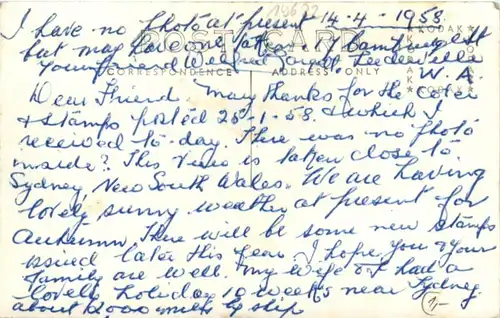 I have no photo at present 14-4-1958.
but may have one taken.
your friend
W.A.
POST CARD
CORRESPONDENCE ADDRESS ONLY
KODAK
Dear Friend, Many thanks for the
& stamps posted 25-1-58. & which I
received to-day. There was no photo
inside? This view is taken close to
Sydney, New South Wales. We are having
lovely sunny weather at present for
Autumn. There will be some new stamps
issued later this year. I hope you & your
family are well. My wife & I had a
lovely holiday 10 weeks near Sydney.
about 12000 miles by ship
1-